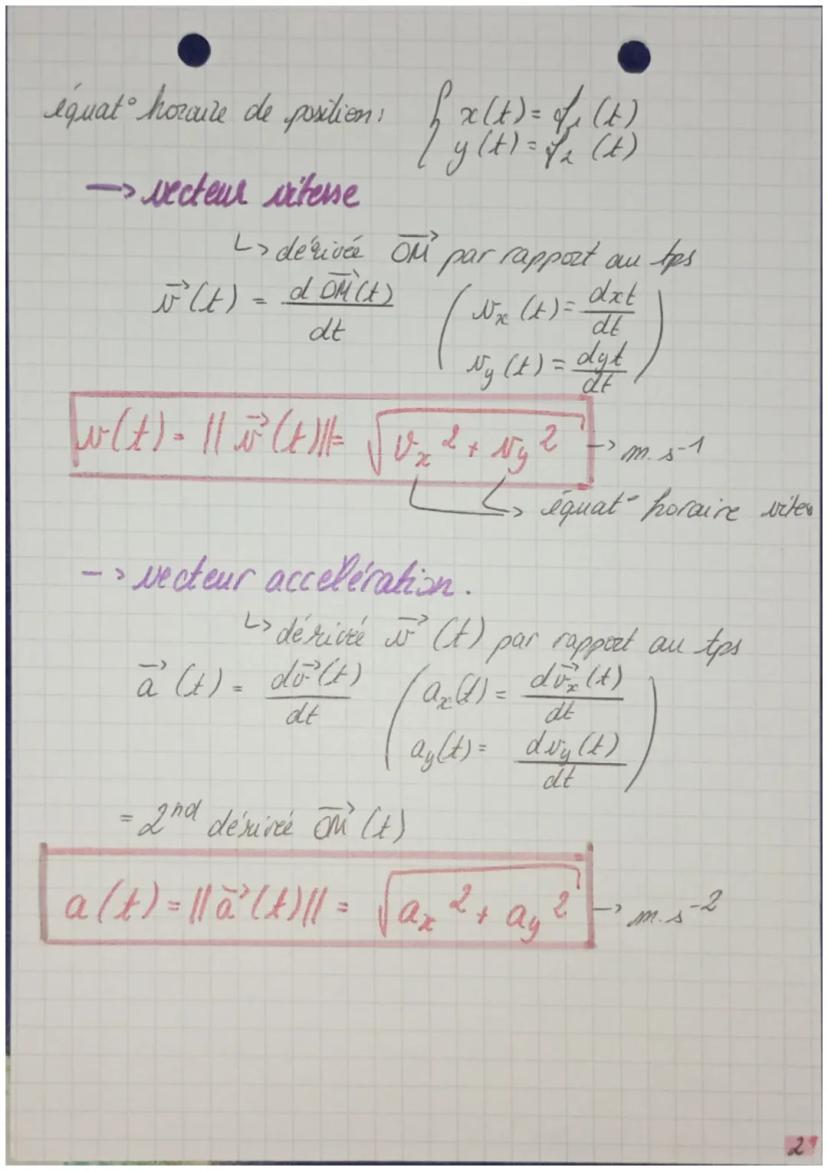 équat° horaire de position: { x(t) = f₁(t)
y(t) = f₂(t)
→ vecteur vitesse
↳ dérivée OM⃗ par rapport au tps
v⃗(t) = d OM⃗(t) / dt ( vₓ(t) = dxt / dt
v_y(t) = dyt / dt )
v(t) = ||v⃗(t)|| = √(vₓ² + v_y²) → m.s⁻¹
↳ équat° horaire vites
→ vecteur accelération.
↳ dérivée v⃗(t) par rapport au tps
a⃗(t) = dv⃗(t) / dt ( aₓ(t) = dv⃗ₓ(t) / dt
a_y(t) = dv_y(t) / dt )
= 2nd dérivée OM⃗(t)
a(t) = ||a⃗(t)|| = √(aₓ² + a_y²) → m.s⁻²
2